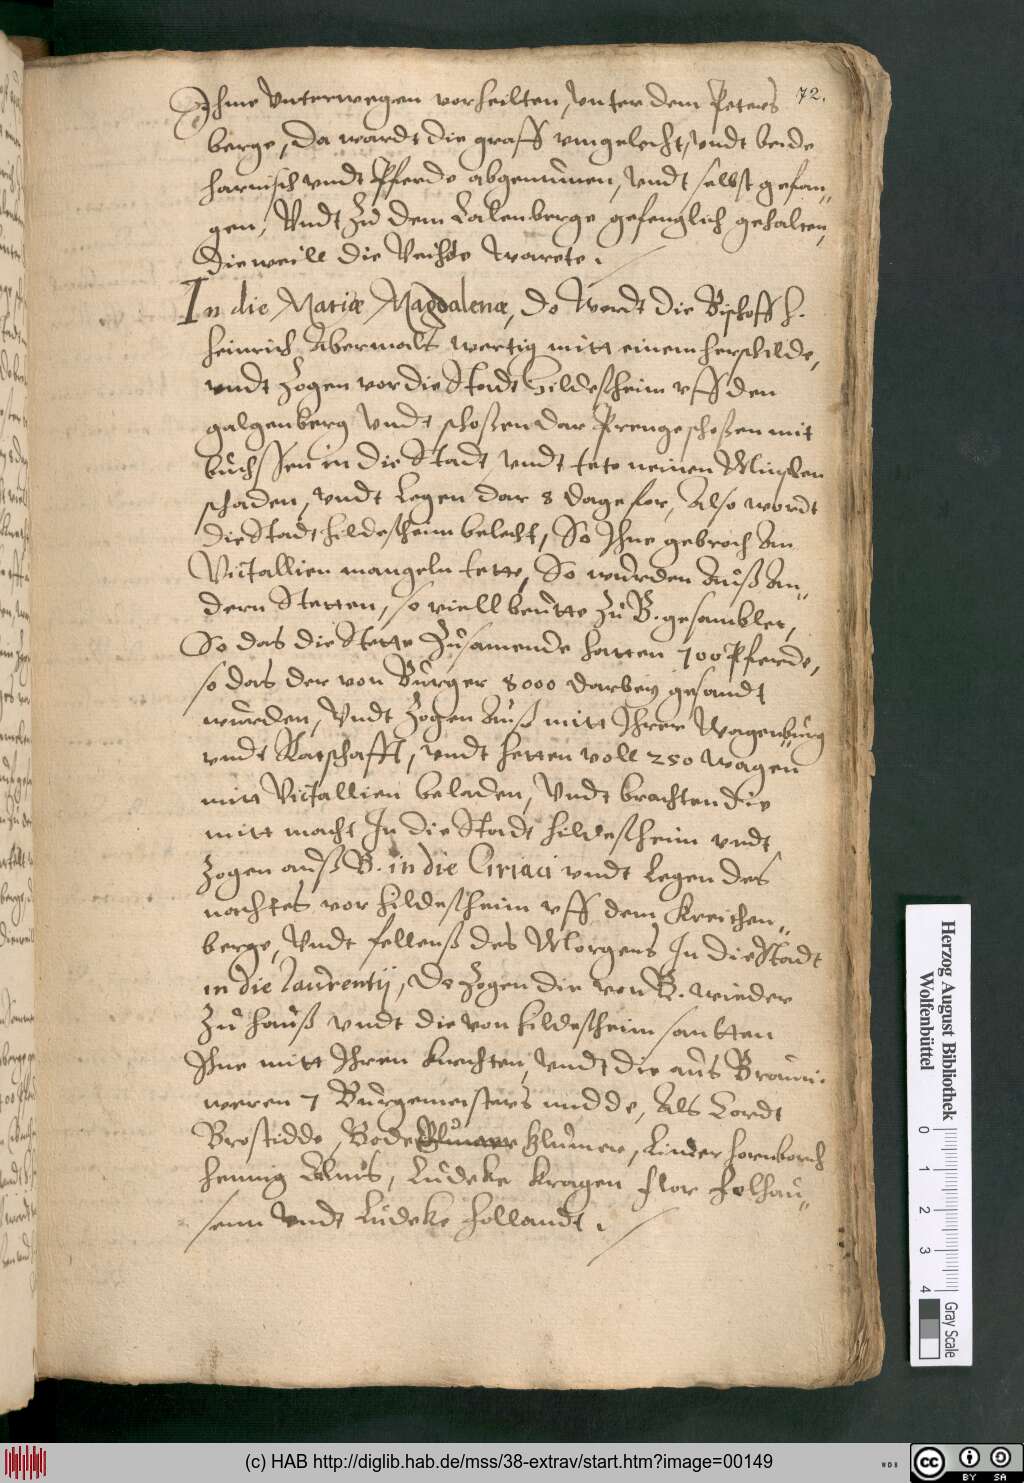 72.
Ihme Unterwegen vorheilten, unter dem Peters
berge, Da wardt die graff umgelecht, undt beide
harnisch undt Pferde abgenummen, undt selbst gefan„
gen, Undt zu dem Lalenberge gefenglich gehalten,
dieweill die Veihde warete.
In die Mariæ Magdalenæ, do wardt die Bischoff h.
heinrich Abermals wertig mitt einem herschilde,
undt zogen vor die Stadt Hildesheim uff den
galgenberg undt schoßen dar Prenge schoßen mit
buchssen in die Stadt, undt tete neinen Minschen
schaden, undt Legen dar 8 dage for, Also wordt
die Stadt hildesheim belecht, So Ihne gebroch An
Victallien mangeln tette, So wurden Auß An„
dern Stetten, so viell beutte zu B. gesamblet,
So das die Stette zusamende hatten 700 Pferde,
so das der von Burger 8000 darbey gesandt
wurden, Undt zogen Auß mitt Ihrer Wagenburg
undt Ratschafft, undt hetten voll 250 wagen
mitt Victallien beladen, Undt brachten die
mitt macht In die Stadt hildesheim undt
zogen auß B. in die Ciriaci undt Legen des
nachtes vor hildesheim uff dem Kreichen„
berge, Undt fellenß des Morgens In die Stadt
in die Laurentij, Do zogen die von B. wieder
zu hauß undt die von hildesheim sanktten
Ihne mitt Ihren knechten, undt die aus Braun:
weren 7 Burgemeisters midde, Als Cordt
Brostidde, Bode klumer, Linder hornborch
hennig Alnis, Ludeke kragen flor Holhau„
senn undt Ludeke Hollandt.
Herzog August Bibliothek
Wolfenbüttel
0 1 2 3 4
Gray Scale
(c) HAB http://diglib.hab.de/mss/38-extrav/start.htm?image=00149
WDB
CC BY SA